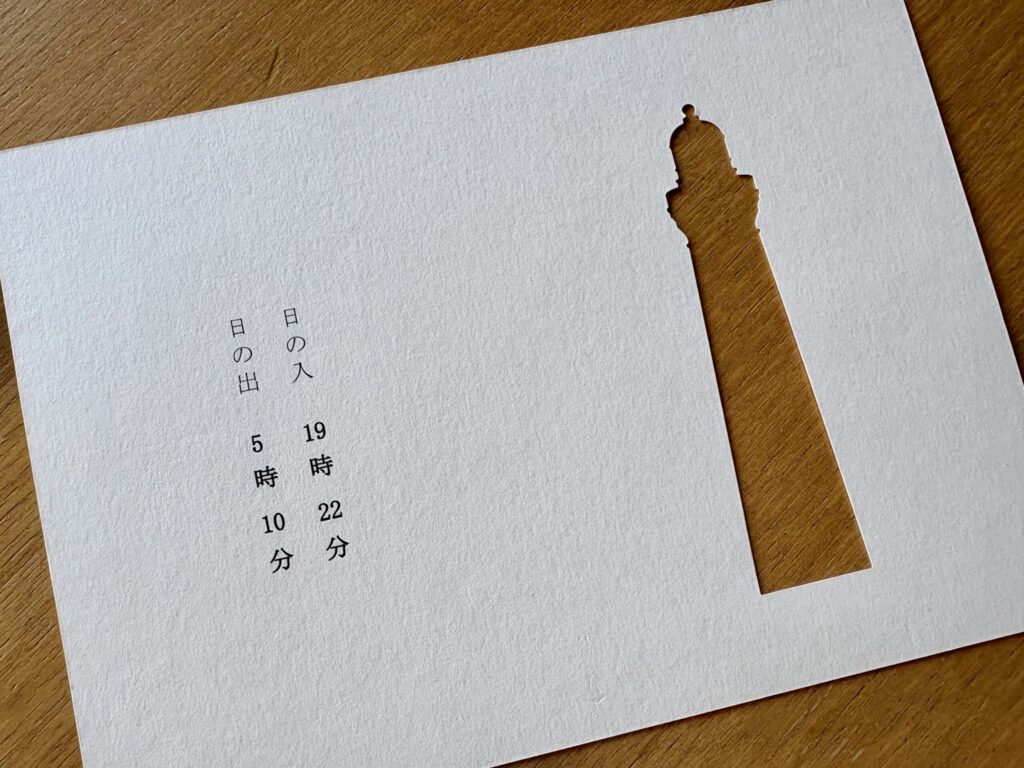 日の入 19時22分
日の出 5時10分